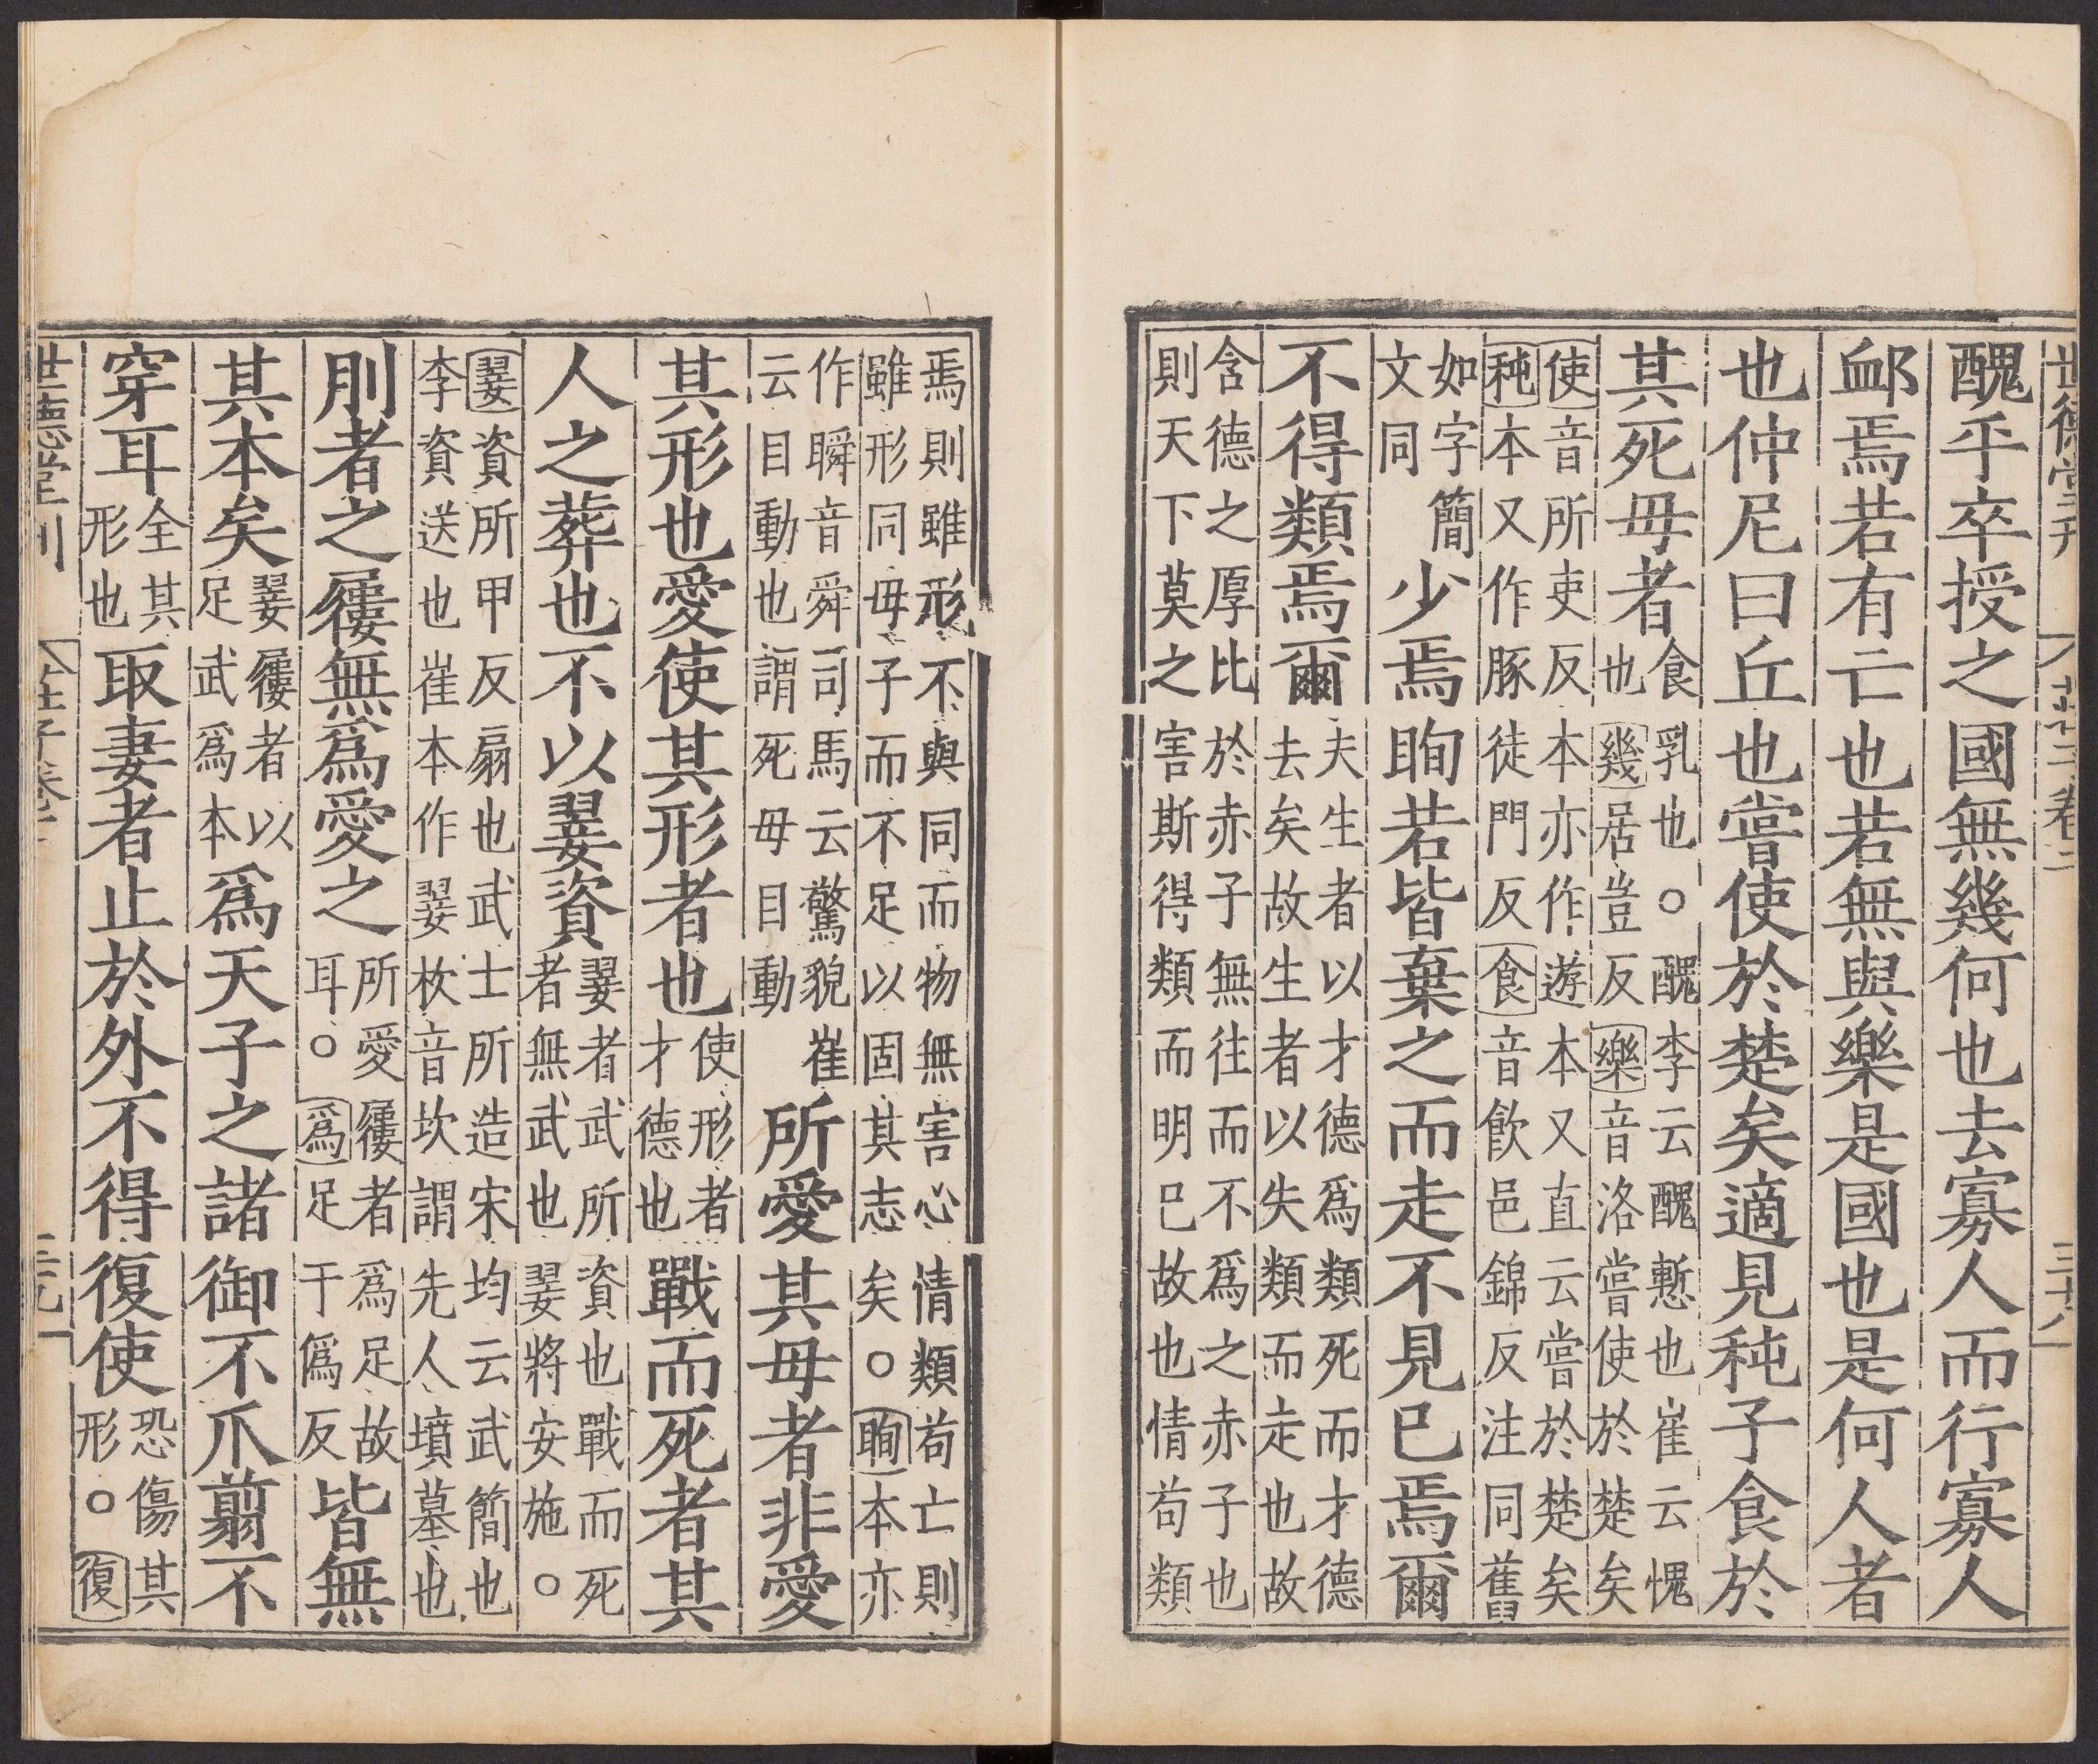 世德堂刊 莊子卷二 三十八
醜乎卒授之國無幾何也去寡人而行寡人
䘏焉若有亡也若無與樂是國也是何人者
也仲尼曰丘也嘗使於楚矣適見㹠子食於
其死母者食乳也○醜李云醜慙也崔云愧也幾居豈反樂音洛嘗使於楚矣
使音所吏反本亦作遊本又直云嘗於楚矣㹠本又作豚徒門反食音飲邑錦反注同舊
如字簡文同少焉眴若皆棄之而走不見己焉爾
不得類焉爾夫生者以才德爲類死而才德去矣故生者以失類而走也故
含德之厚比於赤子無往而不爲之赤子也則天下莫之害斯得類而明己故也情苟類
焉則雖形不與同而物無害心情類苟亡則雖形同母子而不足以固其志矣○眴本亦
作瞬音舜司馬云驚貌崔云目動也謂死母目動所愛其母者非愛
其形也愛使其形者也使形者才德也戰而死者其
人之葬也不以翣資翣者武所資也戰而死者無武也翣將安施○
翣資所甲反扇也武士所造宋均云武簡也李資送也崔本作翣枚音坎謂先人墳墓也
刖者之屨無爲愛之所愛屨者爲足故耳○爲足于僞反皆無
其本矣翣屨者以足武爲本爲天子之諸御不爪翦不
穿耳全其形也取妻者止於外不得復使恐傷其形○復
世德堂刊 莊子卷二 三十九